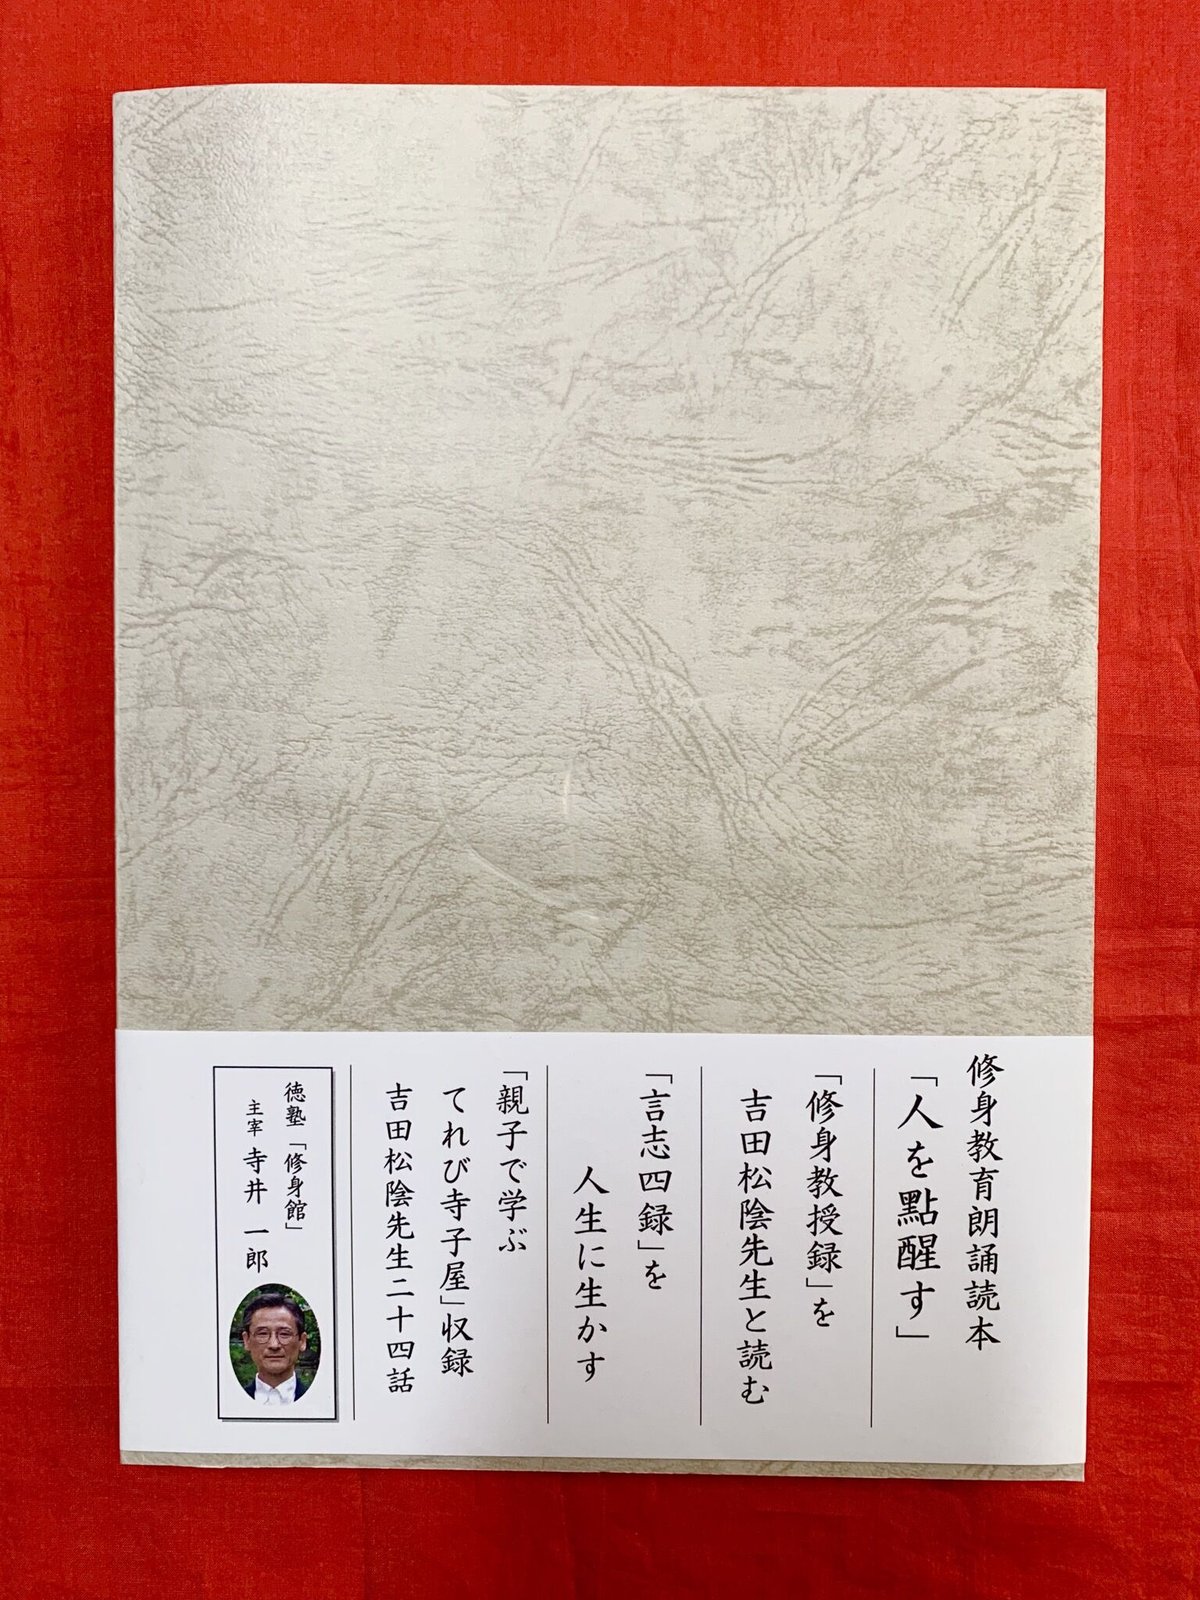 修身教育朗誦読本
「人を點醒す」
「修身教授録」を
吉田松陰先生と読む
「言志四録」を
人生に生かす
「親子で学ぶ
てれび寺子屋」収録
吉田松陰先生二十四話
徳塾「修身館」
主宰 寺井 一郎